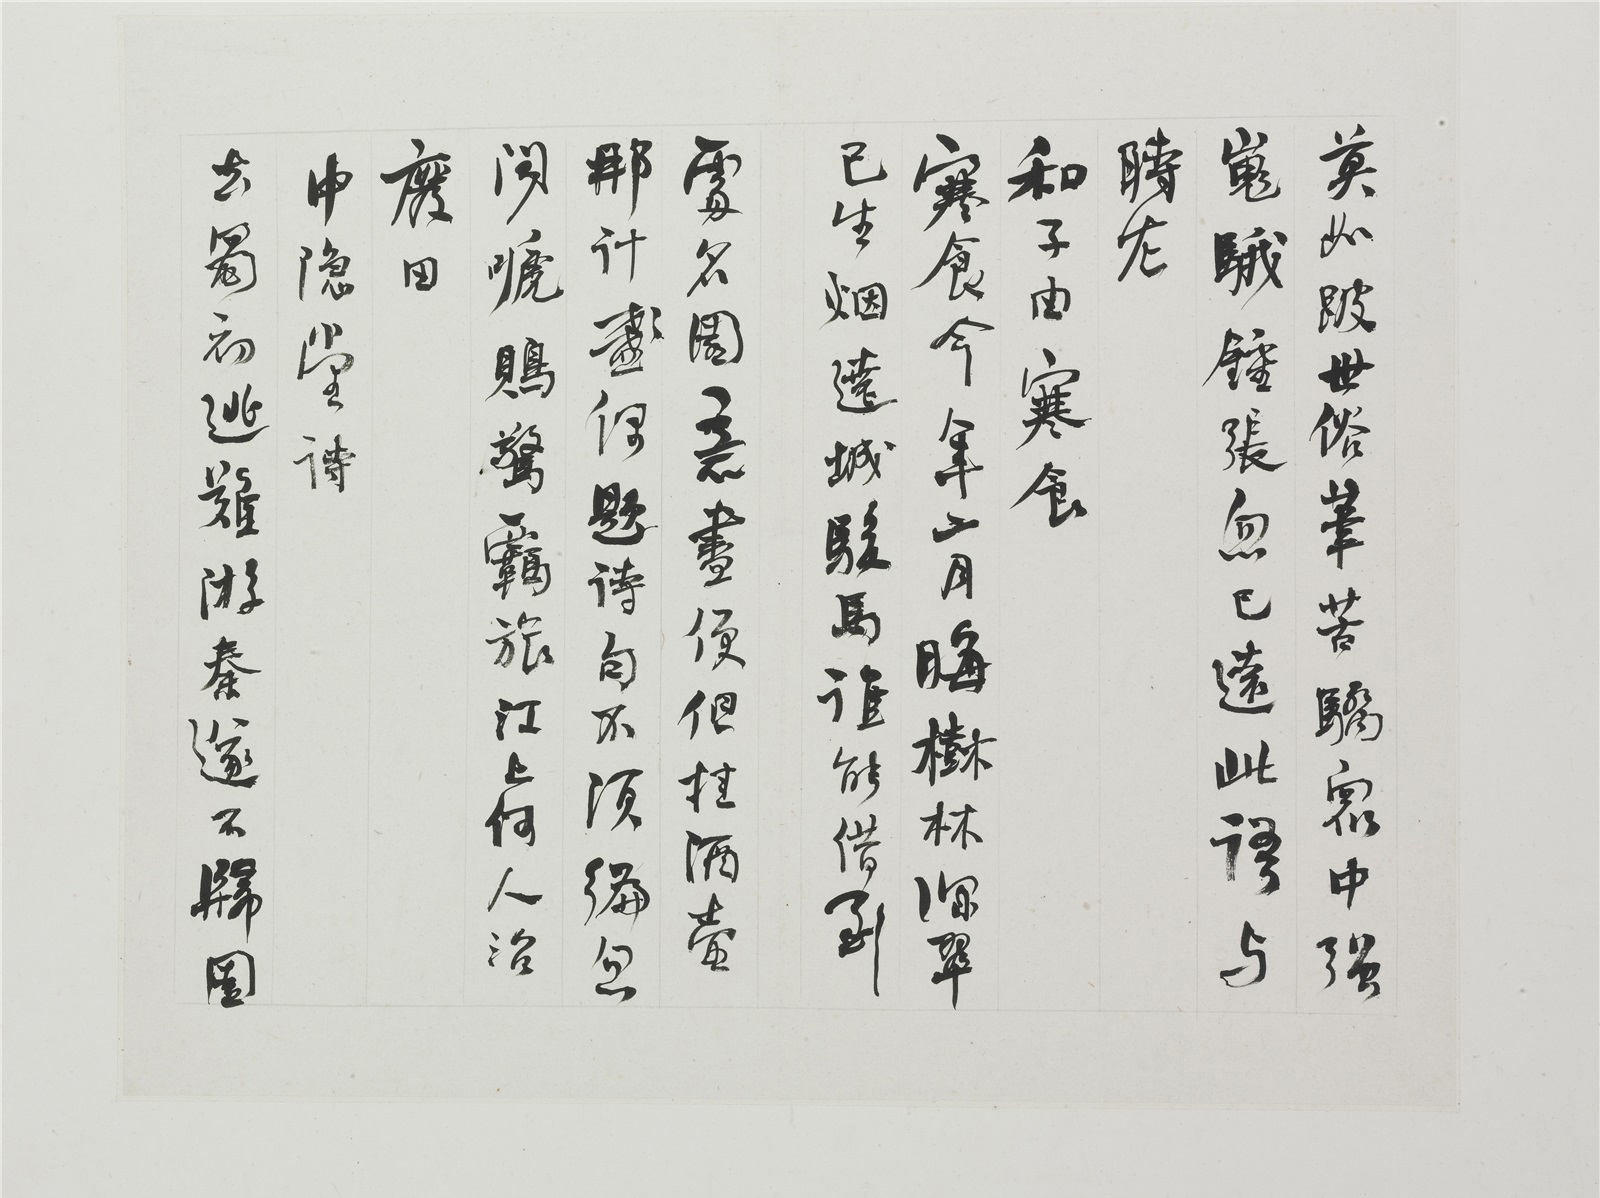 莫如跛世俗筆苦驕衆中强
嵬騀鍾張忽已遠此語与
時左
和子由寒食
寒食今年二月晦樹林深翠
已生烟遶城駿馬誰能借到
處名園意盡便但挂酒壺
那計盞偶題詩句不須編忽
聞嗁鵙驚羈旅江上何人治
廢田
中隱堂詩
去蜀初逃難游秦遂不歸園